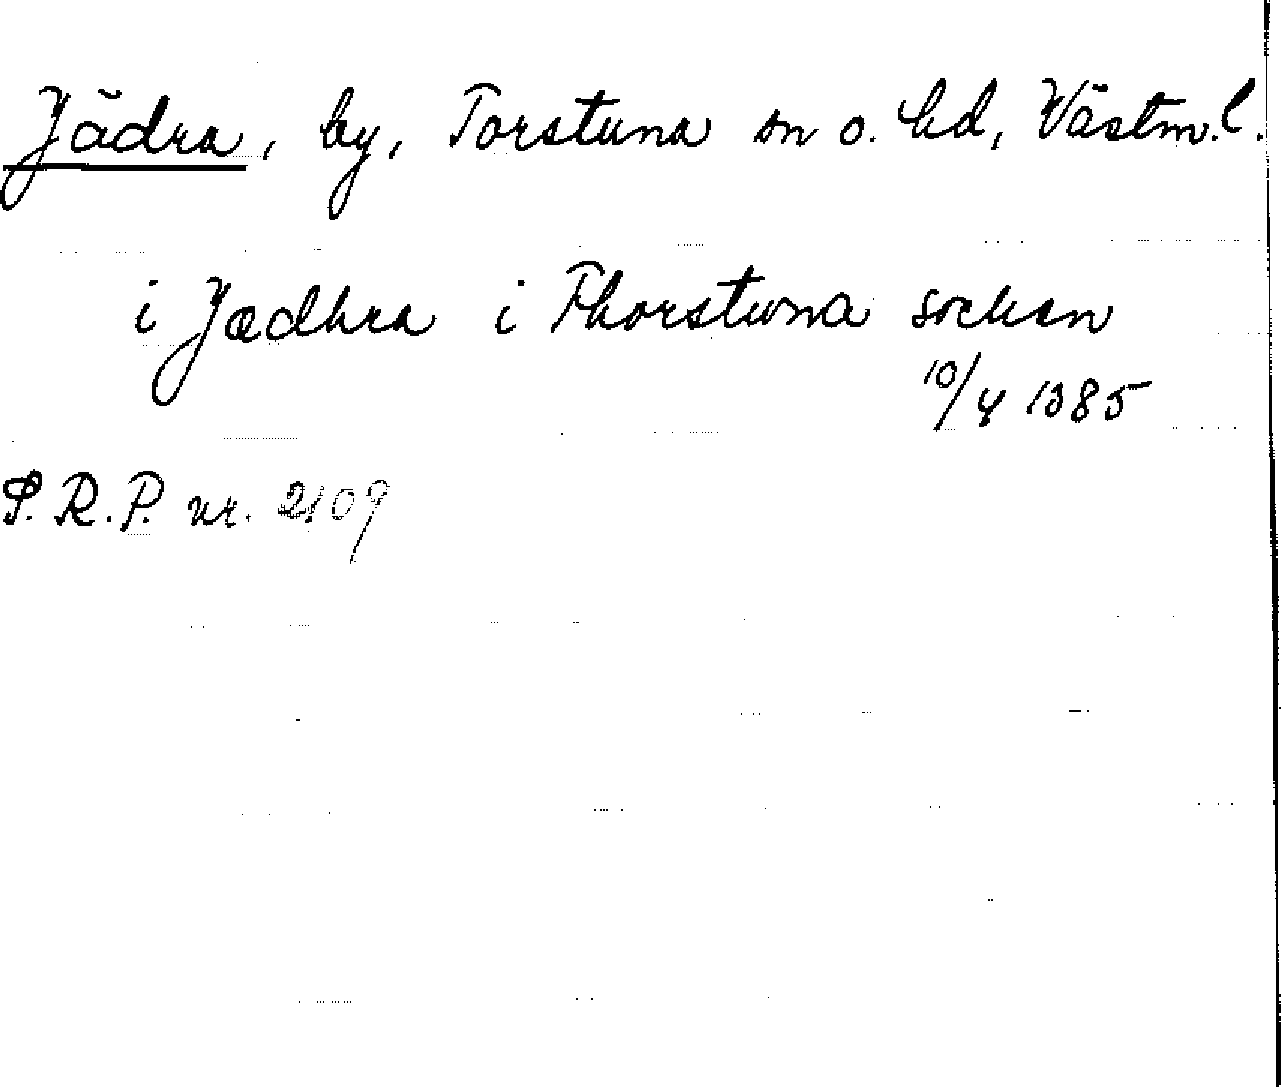 Jädra, by, Torstuna sn o. hd, Västm. l.
i Jædhra i Thorstuna socken
10/4 1385
S.R.P. nr. 2109